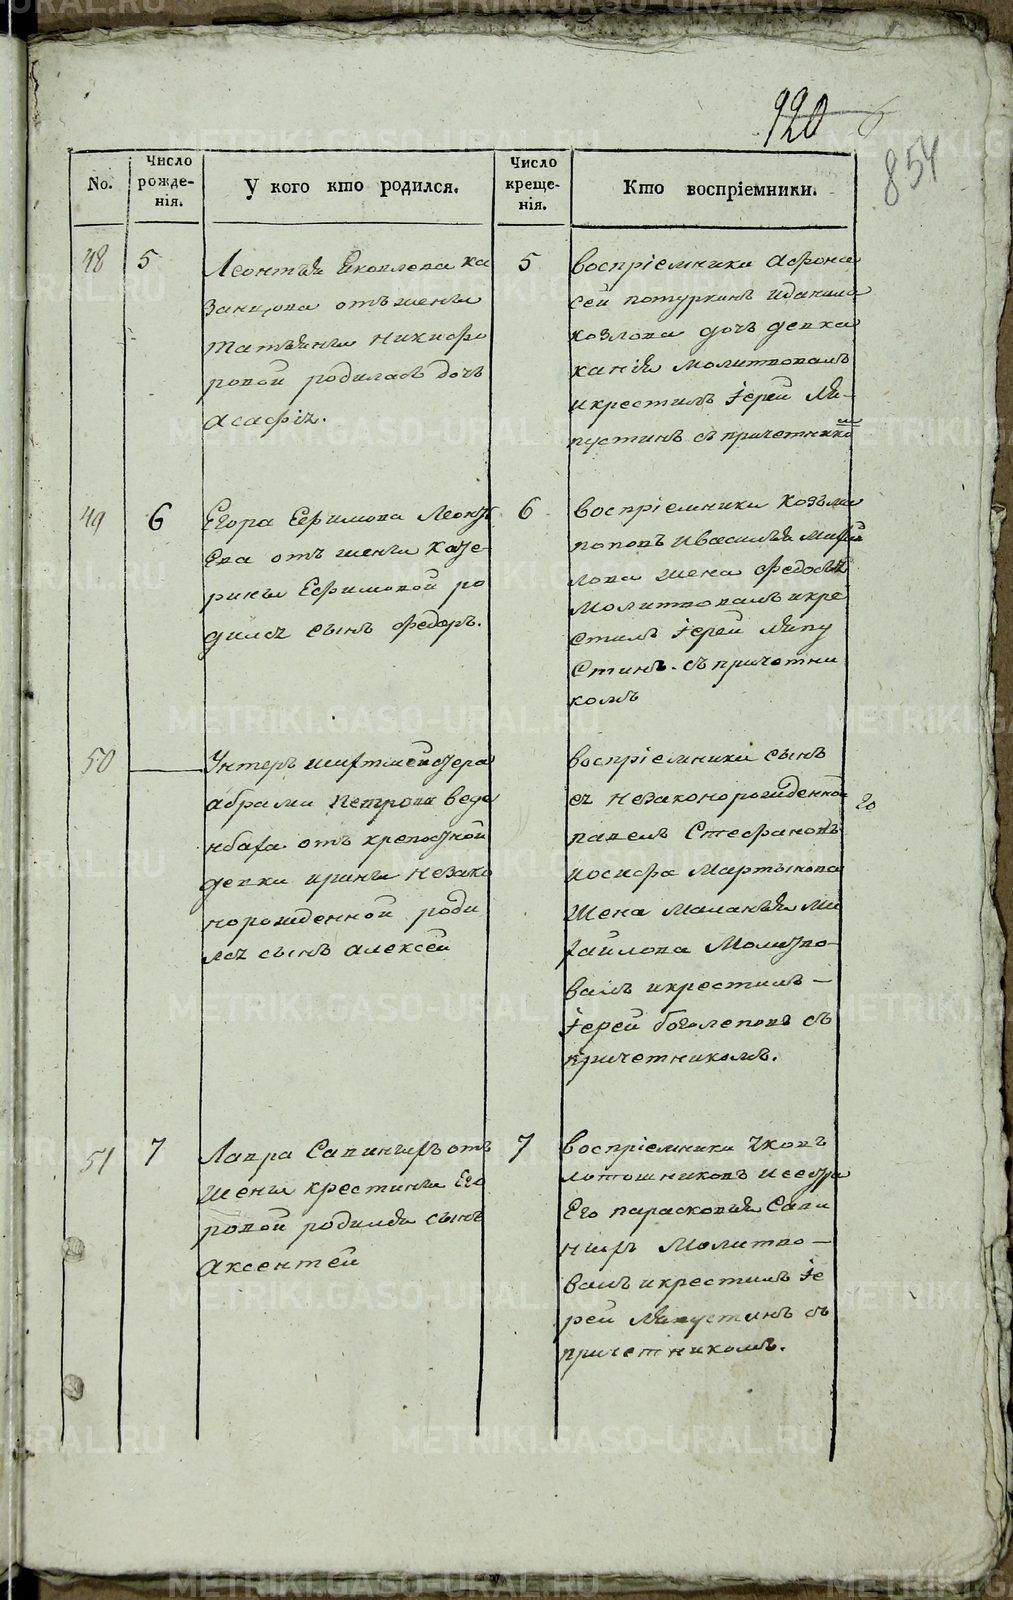 920
854
No.
Число рожде-нія.
У кого кто родился.
Число креще-нія.
Кто воспріемники.
48
5
Леонтья Яковлева ка
занцова отъ жены
татьяны никифо
ровой родилась дочь
агафія.
5
воспріемники афона
сей потуркинъ и данила
козлова дочь девка
молитвовалъ
и крестилъ іерей Ля-
пустинъ съ причетникомъ
49
6
Егора Ефимова Леонть
ева отъ жены кате-
рины Ефимовой ро
дился сынъ федоръ.
6
воспріемники козьма
поповъ и василья михай
лова жена федосья
молитвовалъ и кре
стилъ іерей ляпу
стинъ съ причотни
комъ
50
Унтеръ шихтмейстера
абрама Петрова веде
от крепостной
девки ирины незако
норожденной роди
лся сынъ алексей
воспріемники сынъ
ея незаконорожденной
павелъ Стефановъ
иосифа Мартынова
жена маланья ми
хайлова Молитво-
валъ и крестилъ —
іерей боголеповъ съ
причетникомъ.
20
51
7
Лавра Савиныхъ отъ
жены крестины Его
ровой родился сынъ
аксентей
7
воспріемники Яковъ
лотошниковъ и сестра
Его парасковья Сави
ныхъ Молитво-
валъ и крестилъ іе
рей ляпустинъ съ
причетникомъ.
METRIKI.GASO-URAL.RU